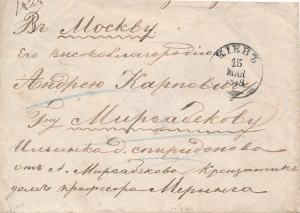 Въ Москву
Его высокоблагородію
Андрею Карповичу
Гну Мирзабекову
Ильинка д. Спиридонова
отъ А. Мирзабекова Крещатикъ
домъ професора Меринга
КІЕВЪ
15
МАЙ